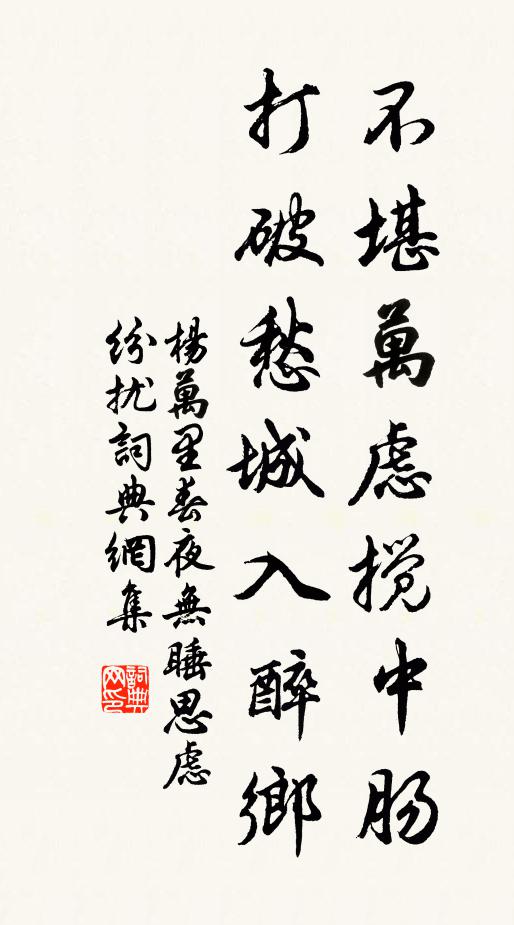 不堪萬慮攪中肠
打破愁城入醉鄉
楊萬里春夜無睡思慮
紛扰詞典網集
詞典网印